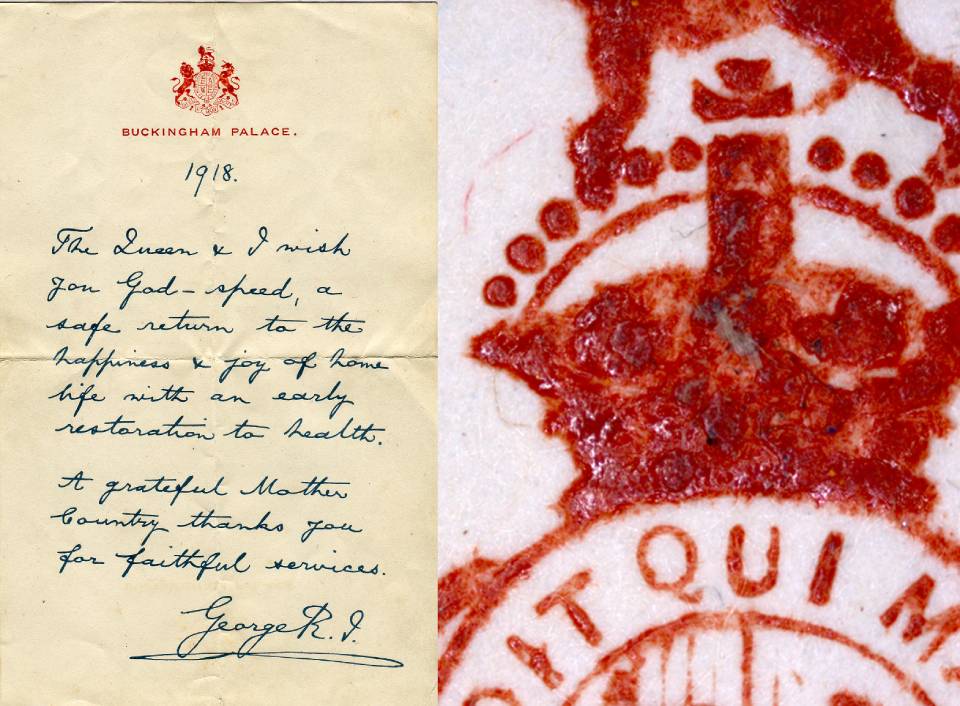 BUCKINGHAM PALACE.
1918.
The Queen & I wish
you God-speed, a
safe return to the
happiness & joy of home
life with an early
restoration to health.
A grateful Mother
Country thanks you
for faithful services.
George R.I.
OIT QUI M